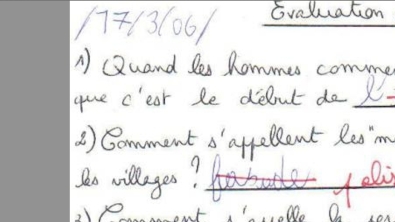 /17/3/06/ Evaluation
1) Quand les hommes comme
que c'est le début de l'
2) Comment s'appellent les "m
les villages ?
3) Comment s'appelle la